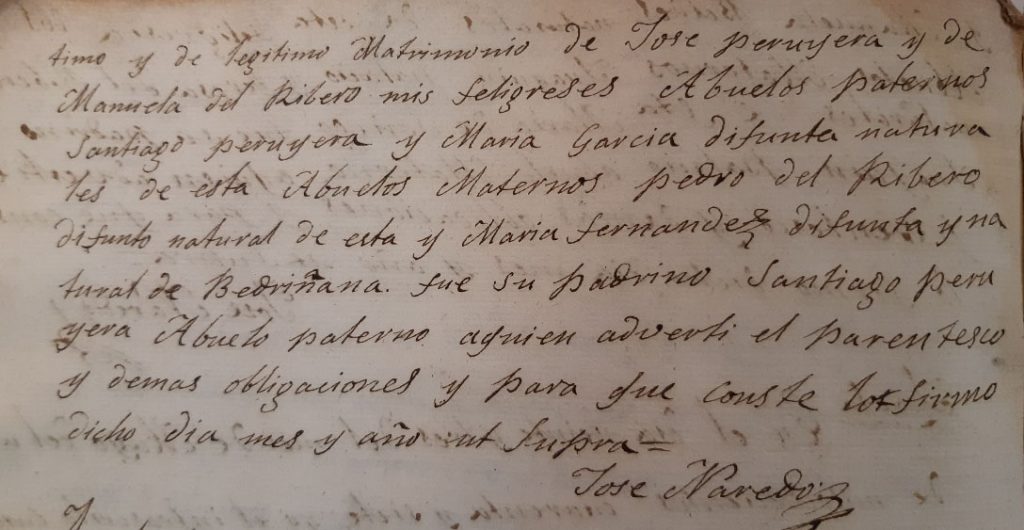 timo y de legitimo Matrimonio de Jose peruyera y de
Manuela del Ribero mis feligreses Abuelos paternos
Santiago peruyera y Maria Garcia difunta natura
les de esta Abuelos Maternos pedro del Ribero
difunto natural de esta y Maria fernandez difunta y na
tural de Bedriñana. fue su padrino Santiago peru
yera Abuelo paterno aquien adverti el parentesco
y demas obligaciones y para que conste lo firmo
dicho dia mes y año ut supra =
Jose Naredo